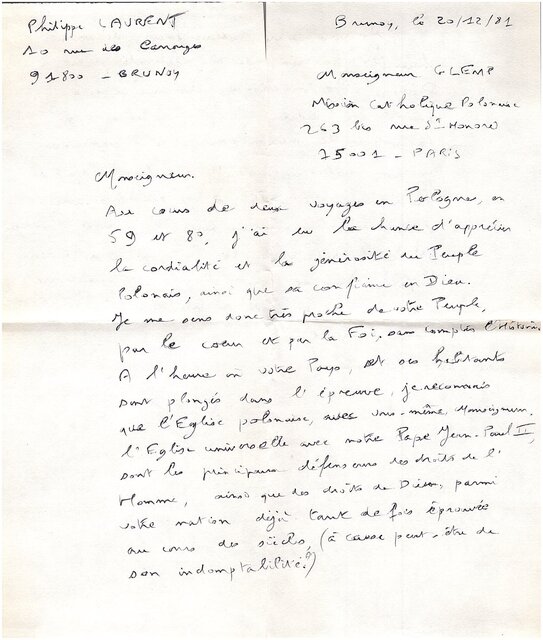 Philippe LAURENT
10 rue des Carouges
91800 - BRUNOY
Brunoy, le 20/12/81
Monseigneur GLEMP
Mission Catholique Polonaise
263 bis rue St Honoré
75001 - PARIS
Monseigneur.
Au cours de deux voyages en Pologne, en
59 et 80, j'ai eu la chance d'apprécier
la cordialité et la générosité du Peuple
Polonais, ainsi que sa confiance en Dieu.
Je me sens donc très proche de votre Peuple,
par le coeur et par la Foi, sans compter l'Histoire.
A l'heure où votre Pays, et ses habitants
sont plongés dans l'épreuve, je reconnais
que l'Eglise polonaise, avec vous-même, Monseigneur,
l'Eglise universelle avec notre Pape Jean-Paul II,
sont les principaux défenseurs des droits de l'
Homme, ainsi que des droits de Dieu, parmi
votre nation déjà tant de fois éprouvée
au cours des siècles, (à cause peut-être de
son indomptabilité?)